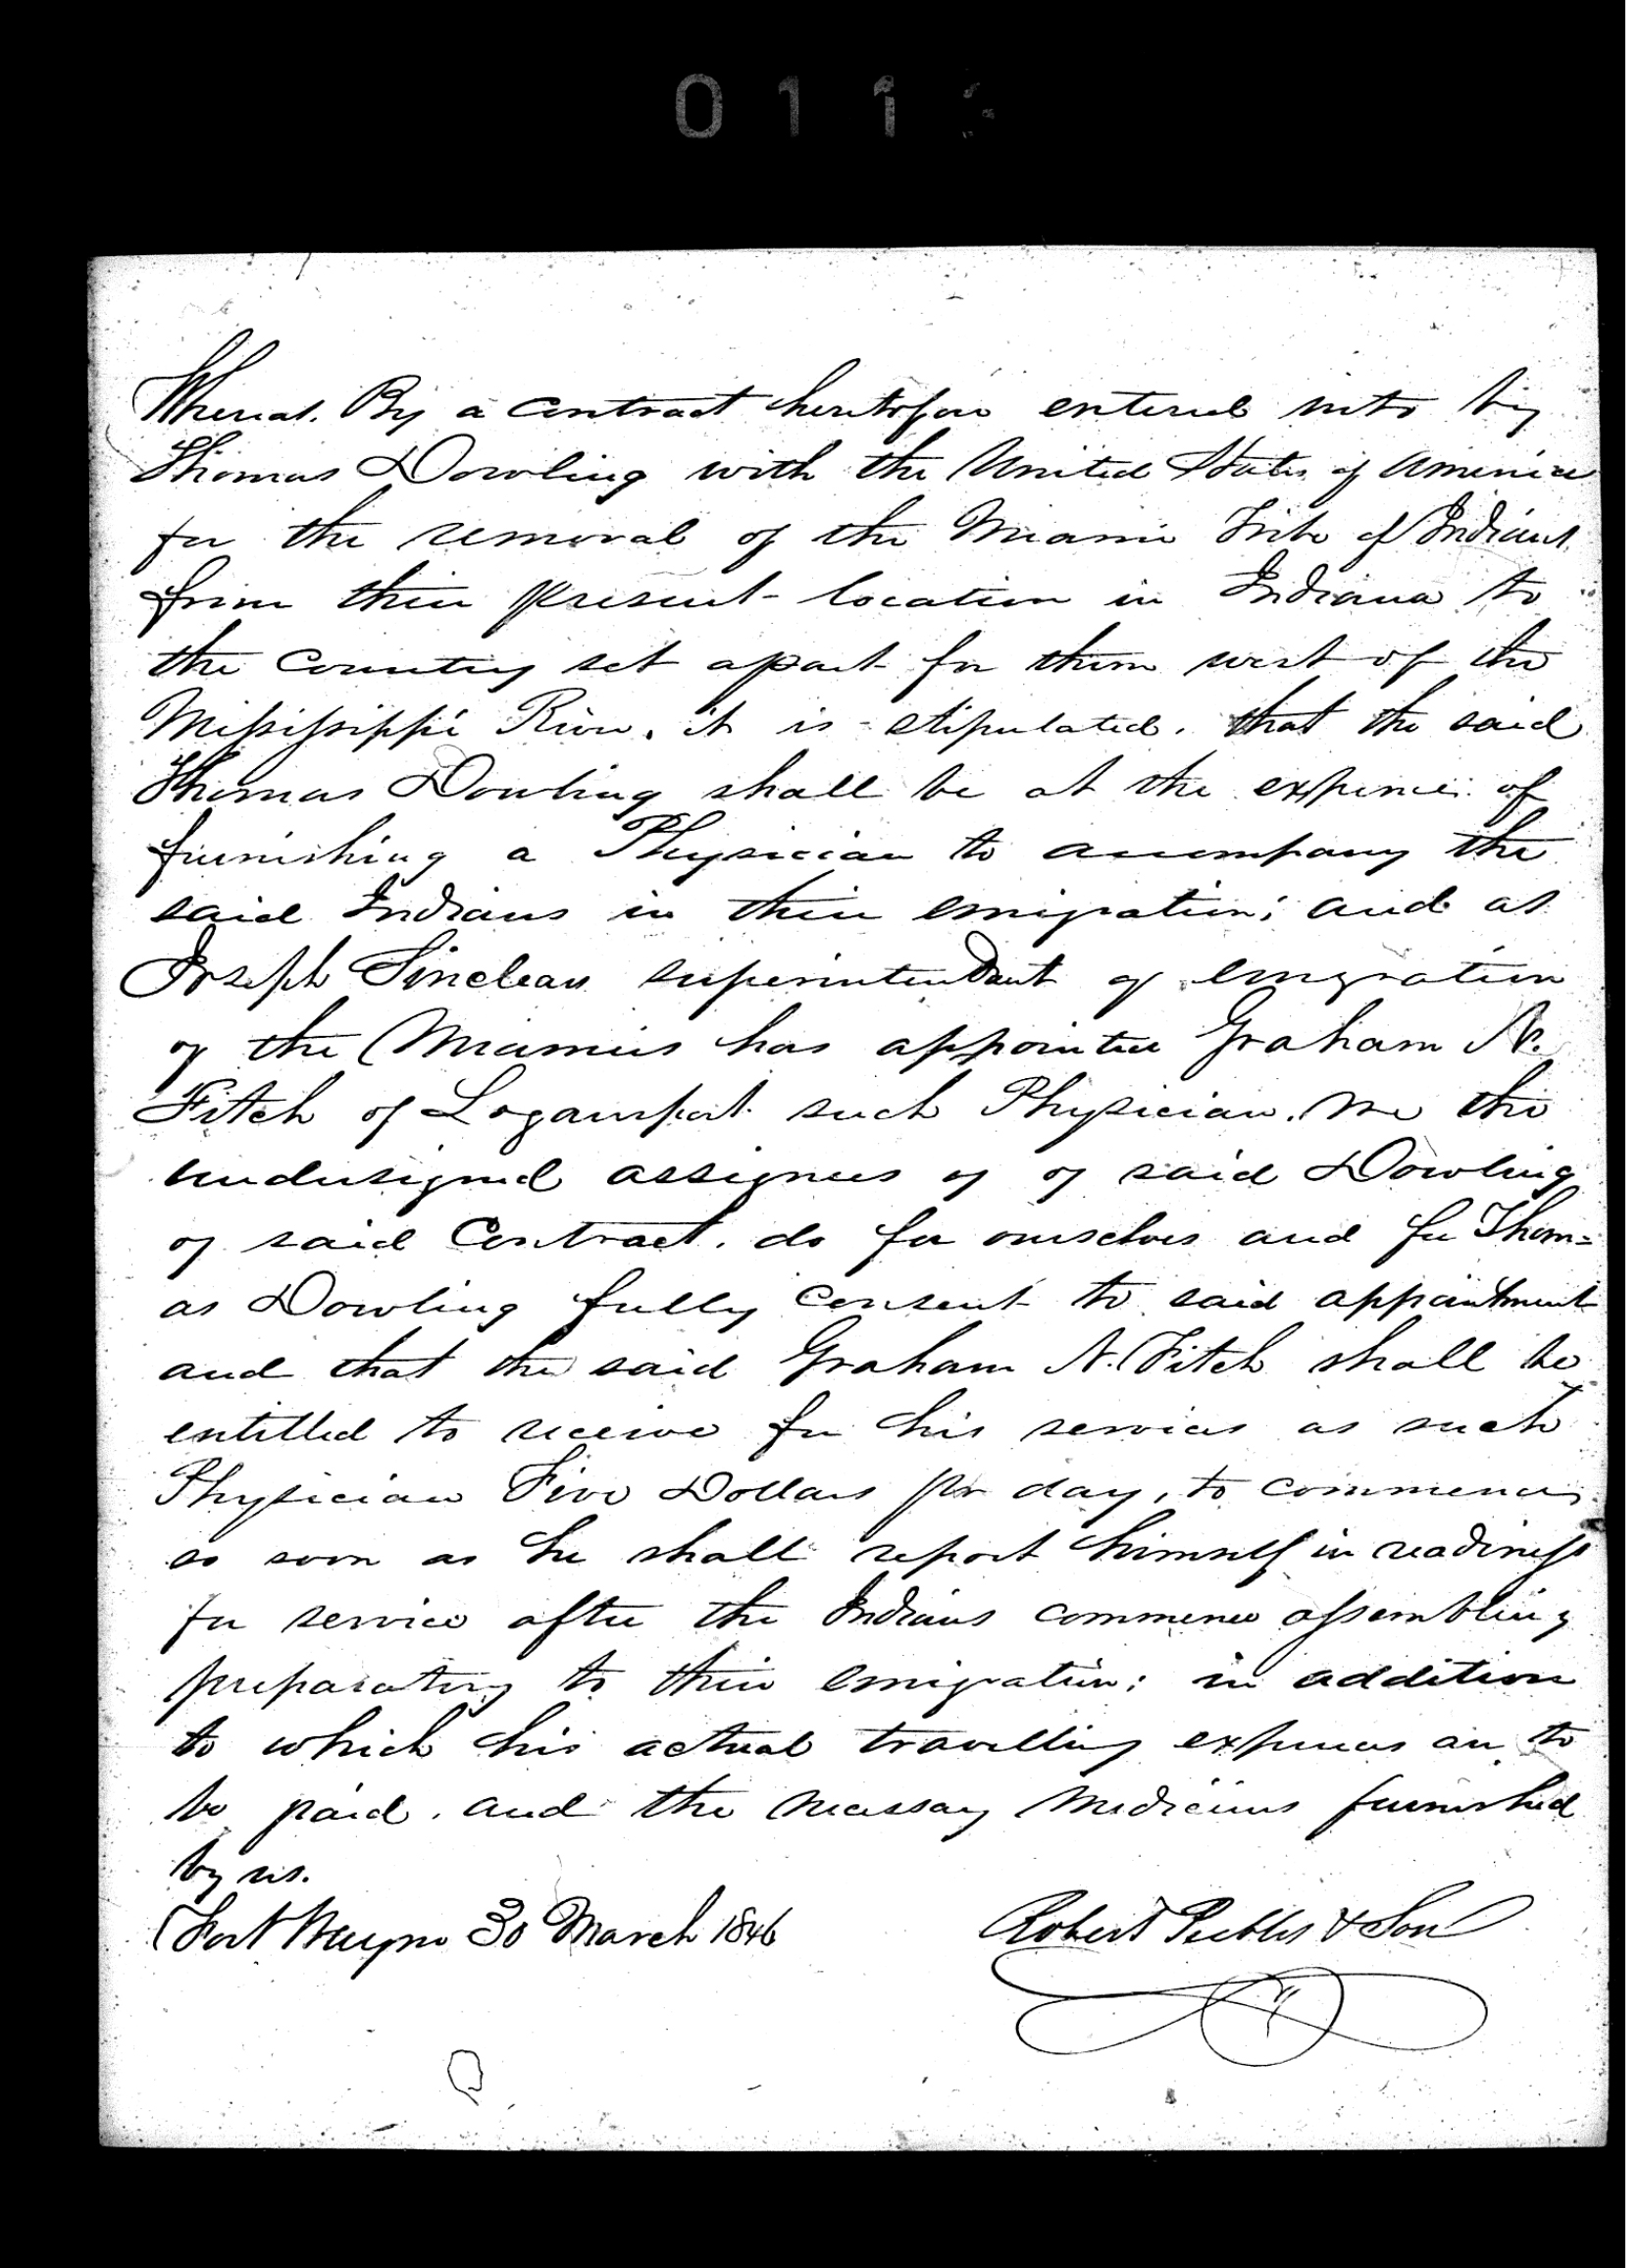 011
Whereas. By a contract heretofore entered into by
Thomas Dowling with the United States of America
for the removal of the Miami Tribe of Indians
from their present location in Indiana to
the Country set apart for them west of the
Mississippi River. it is stipulated. that the said
Thomas Dowling shall be at the expence of
furnishing a Physician to accompany the
said Indians in their emigration; and as
Joseph Sinclear superintendant of emigration
of the Miamies has appointed Graham N.
Fitch of Logansport such Physician. We the
undersigned assignees of of said Dowling
of said Contract. do for ourselves and for Thom=
as Dowling fully Consent to said appointment
and that the said Graham N. Fitch shall be
entitled to receive for his services as such
Physician Five Dollars per day, to commence
so soon as he shall report himself in readiness
for service after the Indians commence assembling
preparatory to their emigration; in addition
to which his actual travelling expenses are to
be paid. and the necessary Medicines furnished
by us.
Fort Wayne 30 March 1846
Robert Peebles & Son